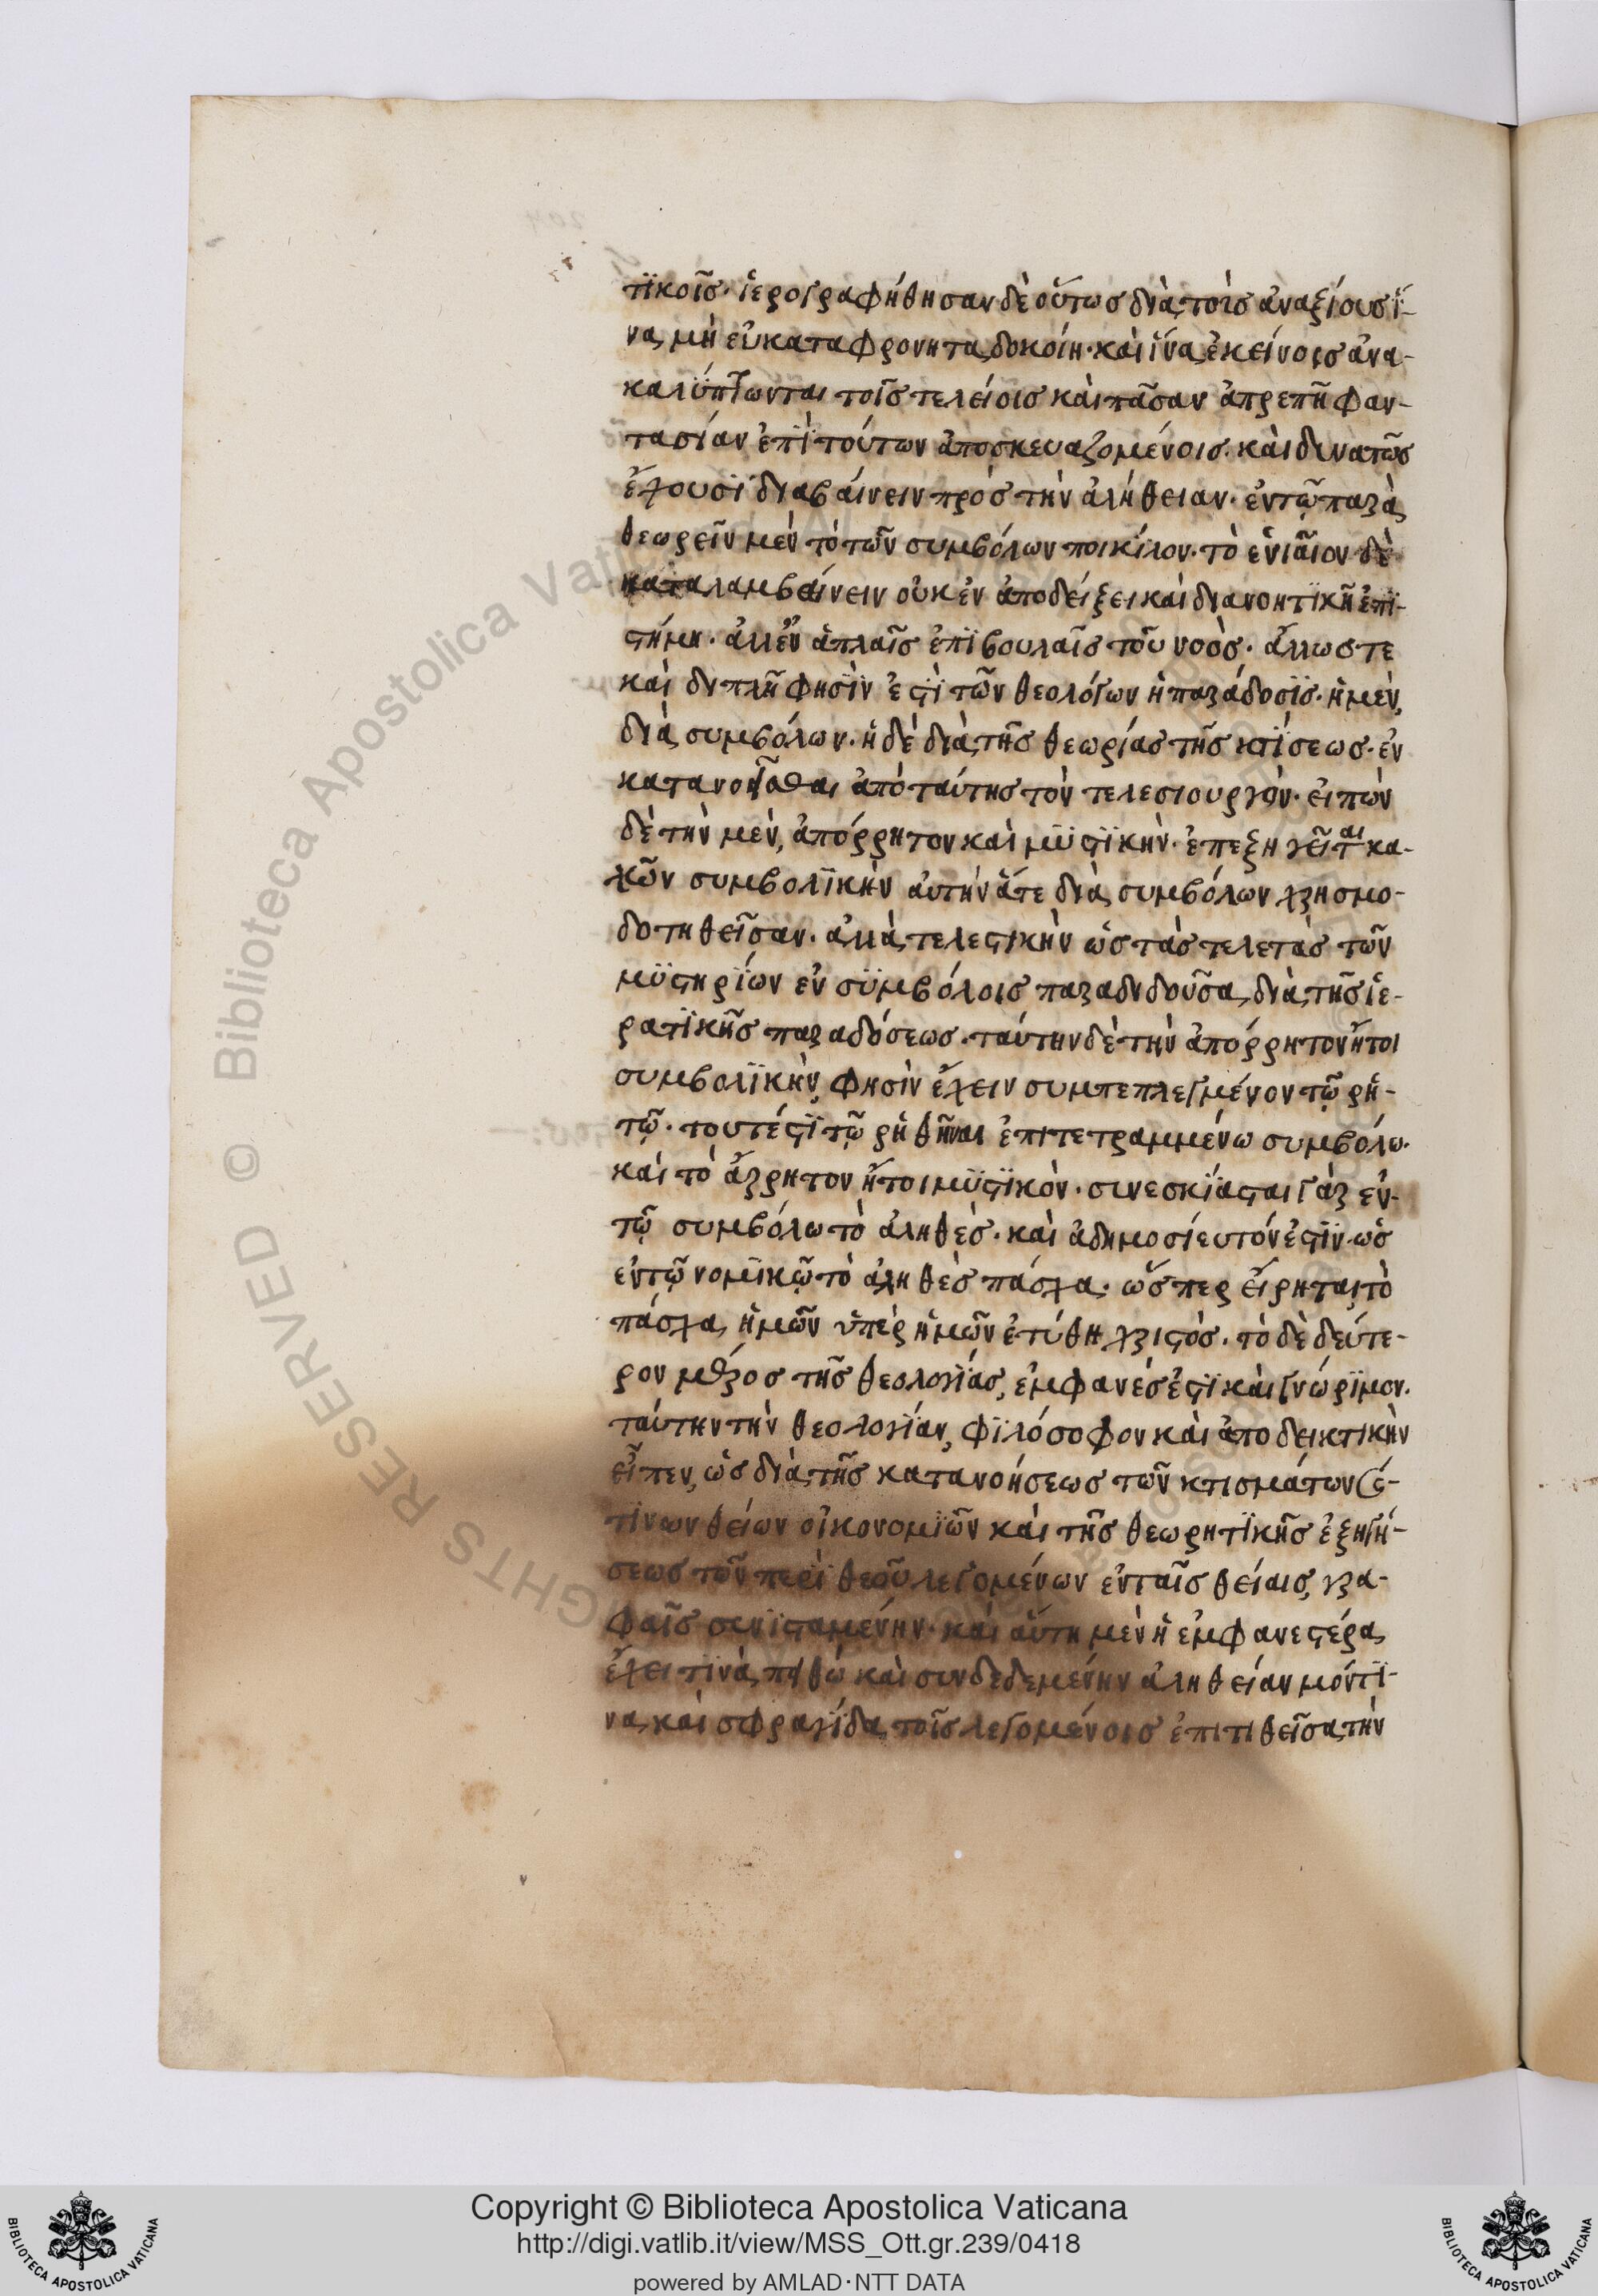 τϊκοῖς· ἱερογραφήθησαν δὲ οὕτως διὰ τοὺς ἀναξίους ἵ-
να μὴ εὐκαταφρόνητα δοκοίη· καὶ ἵνα ἐκείνοις ἀνα-
καλύπτωνται τοῖς τελείοις καὶ πᾶσαν ἀπρεπῆ φαν-
τασίαν ἐπὶ τούτων ἀποσκευαζομένοις· καὶ δυνατῶς
ἔχουσϊ διαβαίνειν πρὸς τὴν ἀλήθειαν· ἐν τῷ παρὰ
θεωρεῖν μὲν τὸ τῶν συμβόλων ποικίλον· τὸ ἑνιαῖον δὲ
καταλαμβαίνειν οὐκ ἐν ἀποδείξει καὶ διανοητϊκῆ ἐπϊ-
στήμη· ἀλλ' ἐν ἁπλαῖς ἐπϊβουλαῖς τοῦ νοὸς· ἄλλως τε
καὶ διπλῆ φησϊν ἐστϊ τῶν θεολόγων ἡ παράδοσϊς· ἡ μὲν,
διὰ συμβόλων· ἡ δὲ διὰ τῆς θεωρίας τῆς κτίσεως· ἐν
κατανοῆσθαι ἀπὸ ταύτης τὸν τελεσιουργὸν· εἰπὼν
δὲ τὴν μὲν, ἀπόρρητον καὶ μϋστϊκὴν· ἐπεξηγεῖται κα-
λῶν συμβολϊκὴν αὐτὴν ἅτε διὰ συμβόλων χρησμο-
δοτηθεῖσαν· ἀλλὰ τελεστικὴν ὡς τὰς τελετὰς τῶν
μϋστηρϊων ἐν σϋμβόλοις παραδιδοῦσα, διὰ τῆς ἱε-
ρατϊκῆς παραδόσεως· ταύτην δὲ τὴν ἀπόρρητον ἤτοι
συμβολϊκὴν, φησὶν ἔχειν συμπεπλεγμένον τῷ ῥη-
τῷ· τουτέστϊ τῷ ῥηθῆναι ἐπιτετραμμένω συμβόλω·
καὶ τὸ ἄρρητον ἤτοι μϋστϊκὸν· συνεσκϊασται γὰρ ἐν
τῷ συμβόλω τὸ ἀληθὲς· καὶ ἀδημοσίευτόν ἐστϊν· ὡς
ἐν τῷ νομϊκῷ τὸ ἀληθὲς πάσχα· ὥσπερ εἴρηται τὸ
πάσχα ἡμῶν ὑπὲρ ἡμῶν ἐτύθη χριστός· τὸ δὲ δεύτε-
ρον μέρος τῆς θεολογϊας, ἐμφανές ἐστϊ καὶ γνώρϊμον·
ταύτην τὴν θεολογϊαν, φϊλόσοφον καὶ ἀποδεικτικὴν
εἶπεν, ὡς διὰ τῆς κατανοήσεως τῶν κτισμάτων ἔς
τινων θείων οἰκονομϊῶν καὶ τῆς θεωρητϊκῆς ἐξηγή-
σεως τῶν περὶ θεοῦ λεγομένων ἐν ταῖς θείαις γρα-
φαῖς συνϊσταμένην· καὶ αὕτη μὲν ἡ ἐμφανεστέρα,
ἔχει τϊνὰ πϊθὼ καὶ συνδεδεμένην ἀληθείαν μόντϊ-
να καὶ σφραγϊδα τοῖς λεγομένοις ἐπιτιθεῖσα τὴν
Copyright © Biblioteca Apostolica Vaticana
http://digi.vatlib.it/view/MSS_Ott.gr.239/0418
powered by AMLAD·NTT DATA